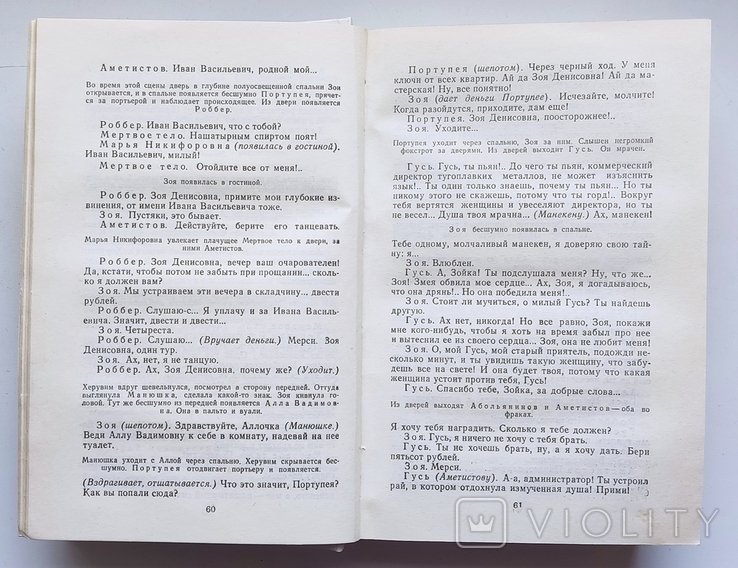 Аметистов. Иван Васильевич, родной мой...
Во время этой сцены дверь в глубине полуосвещенной спальни Зои
открывается, и в спальне появляется бесшумно Портупея, прячет-
ся за портьерой и наблюдает происходящее. Из двери появляется
Роббер.
Роббер. Иван Васильевич, что с тобой?
Мертвое тело. Нашатырным спиртом поят!
Марья Никифоровна (появилась в гостиной).
Иван Васильевич, милый!
Мертвое тело. Отойдите все от меня!..
Зоя появилась в гостиной.
Роббер. Зоя Денисовна, примите мои глубокие из-
винения, от имени Ивана Васильевича тоже.
Зоя. Пустяки, это бывает.
Аметистов. Действуйте, берите его танцевать.
Марья Никифоровна увлекает плачущее Мертвое тело к двери, за
ними Аметистов.
Роббер. Зоя Денисовна, вечер ваш очарователен!
Да, кстати, чтобы потом не забыть при прощании... сколь-
ко я должен вам?
Зоя. Мы устраиваем эти вечера в складчину... двести
рублей.
Роббер. Слушаю-с... Я уплачу и за Ивана Василь-
евича. Значит, двести и двести...
Зоя. Четыреста.
Роббер. Слушаю... (Вручает деньги.) Мерси. Зоя
Денисовна, один тур.
Зоя. Ах, нет, я не танцую.
Роббер. Ах, Зоя Денисовна, почему же? (Уходит.)
Херувим вдруг шевельнулся, посмотрел в сторону передней. Оттуда
выглянула Манюшка, сделала какой-то знак. Зоя кивнула го-
ловой. Тут же бесшумно из передней появляется Алла Вадимов-
на. Она в пальто и вуали.
Зоя (шепотом). Здравствуйте, Аллочка (Манюшке.)
Веди Аллу Вадимовну к себе в комнату, надевай на нее
туалет.
Манюшка уходит с Аллой через спальню, Херувим скрывается бес-
шумно. Портупея отодвигает портьеру и появляется.
(Вздрагивает, отшатывается.) Что это значит, Портупея?
Как вы попали сюда?
60
Портупея (шепотом). Через черный ход. У меня
ключи от всех квартир. Ай да Зоя Денисовна! Ай да ма-
стерская! Ну, все понятно!
Зоя (дает деньги Портупее). Исчезайте, молчите!
Когда разойдутся, приходите, дам еще!
Портупея. Зоя Денисовна, поосторожнее!..
Зоя. Уходите...
Портупея уходит через спальню, Зоя за ним. Слышен негромкий
фокстрот за дверями. Из дверей выходит Гусь. Он мрачен.
Гусь. Гусь, ты пьян!.. До чего ты пьян, коммерческий
директор тугоплавких металлов, не может изъяснить
язык!.. Ты один только знаешь, почему ты пьян... Но ты
никому этого не скажешь, потому что ты горд!.. Вокруг
тебя вертятся женщины и увеселяют директора, но ты
не весел... Душа твоя мрачна... (Манекену.) Ах, манекен!
Зоя бесшумно появилась в спальне.
Тебе одному, молчаливый манекен, я доверяю свою тай-
ну: я...
Зоя. Влюблен.
Гусь. А, Зойка! Ты подслушала меня? Ну, что же...
Зоя! Змея обвила мое сердце... Ах, Зоя, я догадываюсь,
что она дрянь!.. Но она победила меня!..
Зоя. Стоит ли мучиться, о милый Гусь? Ты найдешь
другую.
Гусь. Ах нет, никогда! Но все равно, Зоя, покажи
мне кого-нибудь, чтобы я хоть на время забыл про нее
и вытеснил ее из своего сердца... Зоя, она не любит меня!
Зоя. О, мой Гусь, мой старый приятель, подожди не-
сколько минут, и ты увидишь такую женщину, что забу-
дешь все на свете! И она будет твоя, потому что какая
женщина устоит против тебя, Гусь!
Гусь. Спасибо тебе, Зойка, за добрые слова...
Из дверей выходят Абольянинов и Аметистов — оба во
фраках.
Я хочу тебя наградить. Сколько я тебе должен?
Зоя. Гусь, я ничего не хочу с тебя брать.
Гусь. Ты не хочешь брать, ну, а я хочу дать. Бери
пятьсот рублей.
Зоя. Мерси.
Гусь (Аметистову). А-а, администратор! Ты устроил
рай, в котором отдохнула измученная душа! Прими!
61
VIOLITY